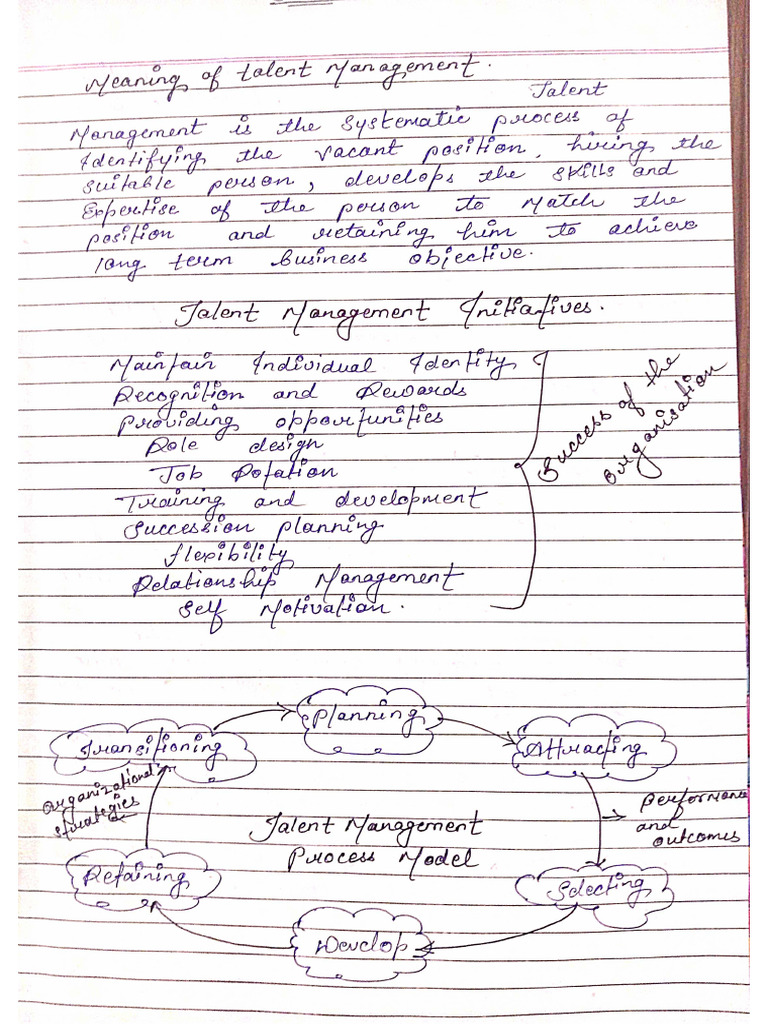 Meaning of talent Management.
Talent
Management is the systematic process of
Identifying the vacant position, hiring the
suitable person, develops the skills and
Expertise of the person to match the
position and retaining him to achieve
long term business objective.
Talent Management Initiatives.
Maintain Individual Identity
Recognition and Rewards
Providing opportunities
Role design
Job Rotation
Training and development
Succession planning
flexibility
Relationship Management
Self Motivation.
Success of the
Organisation
Planning
Transitioning
Attracting
Organizational
strategies
Performance
and
outcomes
Talent Management
Process Model
Retaining
Selecting
Develop